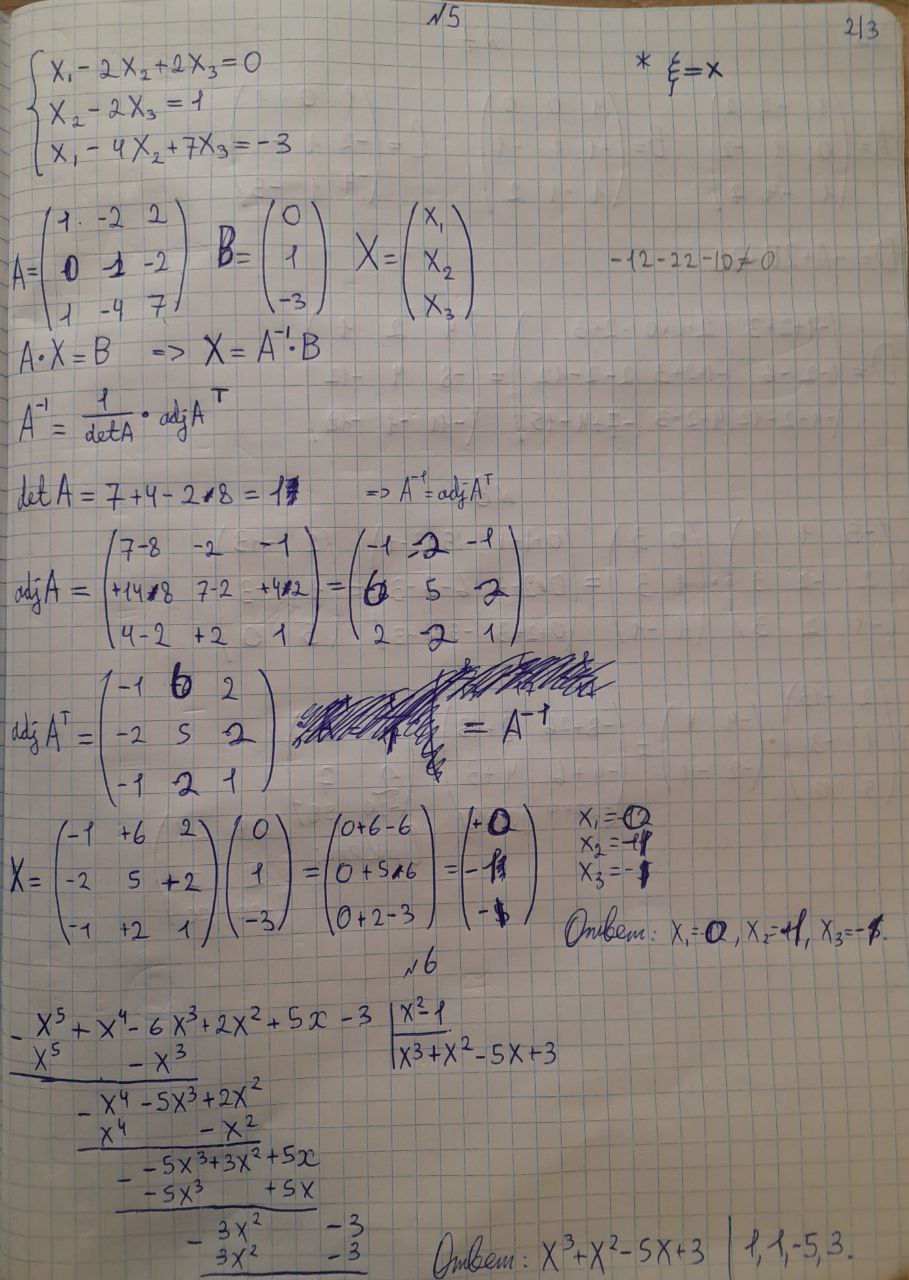 №5
2/3
x₁ - 2x₂ + 2x₃ = 0
* ξ = x
x₂ - 2x₃ = 1
x₁ - 4x₂ + 7x₃ = -3
A = (1 -2 2; 0 1 -2; 1 -4 7) B = (0; 1; -3) X = (x₁; x₂; x₃)
-12-22-10≠0
A·X = B => X = A⁻¹·B
A⁻¹ = 1/detA · adjA^T
det A = 7+4-2-8 = 1 => A⁻¹ = adjA^T
adjA = (7-8 -2 -1; +14-8 7-2 +4-2; 4-2 +2 1) = (-1 -2 -1; 6 5 2; 2 2 1)
adjA^T = (-1 6 2; -2 5 2; -1 2 1) = A⁻¹
X = (-1 +6 2; -2 5 +2; -1 +2 1)(0; 1; -3) = (0+6-6; 0+5-6; 0+2-3) = (0; -1; -1)
x₁ = 0
x₂ = -1
x₃ = -1
Ответ: x₁ = 0, x₂ = -1, x₃ = -1.
№6
x⁵ + x⁴ - 6x³ + 2x² + 5x - 3 | x² - 1
x⁵ - x³ | x³ + x² - 5x + 3
x⁴ - 5x³ + 2x²
x⁴ - x²
-5x³ + 3x² + 5x
-5x³ + 5x
3x² - 3
3x² - 3
Ответ: x³ + x² - 5x + 3 | 1, 1, -5, 3.